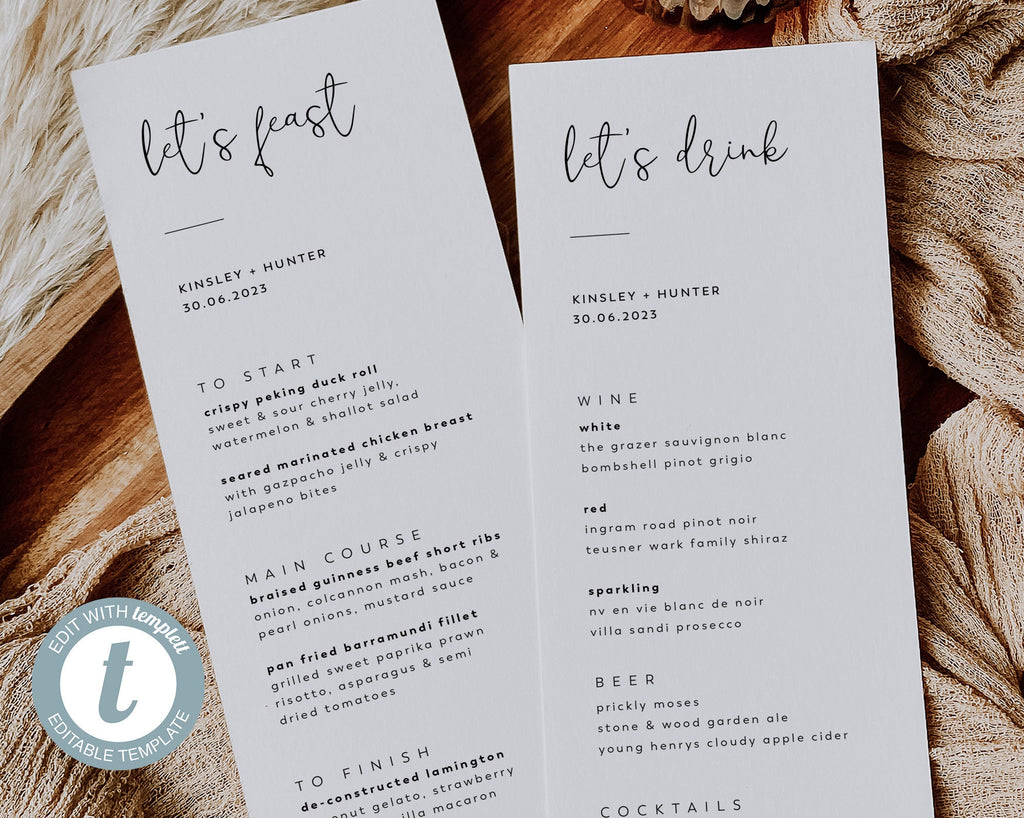 let's feast
KINSLEY + HUNTER
30.06.2023
TO START
crispy peking duck roll
sweet & sour cherry jelly,
watermelon & shallot salad
seared marinated chicken breast
with gazpacho jelly & crispy
jalapeno bites
MAIN COURSE
braised guinness beef short ribs
onion, colcannon mash, bacon &
pearl onions, mustard sauce
pan fried barramundi fillet
grilled sweet paprika prawn
risotto, asparagus & semi
dried tomatoes
TO FINISH
de-constructed lamington
gelato, strawberry
macaron
let's drink
KINSLEY + HUNTER
30.06.2023
WINE
white
the grazer sauvignon blanc
bombshell pinot grigio
red
ingram road pinot noir
teusner wark family shiraz
sparkling
nv en vie blanc de noir
villa sandi prosecco
BEER
prickly moses
stone & wood garden ale
young henrys cloudy apple cider
COCKTAILS
EDIT WITH templett
t
EDITABLE TEMPLATE